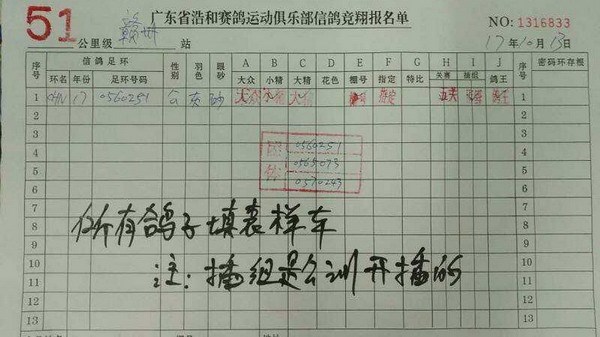 广东省浩和赛鸽运动俱乐部信鸽竞翔报名单
NO: 1316833
51公里级 赣州 站
17年10月13日
序号 信鸽足环 性别 眼砂 A B C D E F G H I J 序号 密码环存根
环名 年份 足环号码 大众 小精 大精 花色 棚号 指定 特比 关赛 插组 鸽王
1 CHN 17 0560251 大众 小精 大精 指定 鸽王 1
2 2
3 3
4 0560251 4
5 0565073 5
6 0570243 6
7 7
8 所有鸽子填表样本 8
9 9
10 注:插组是公训开插的 10
11 11
12 12
13 13